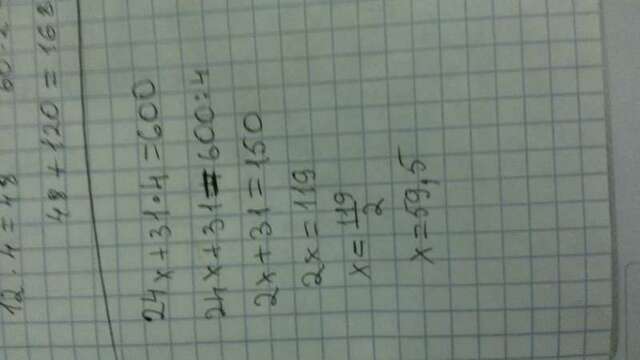 12 · 4 = 48
48 + 120 = 168
24x + 31 · 4 = 600
24x + 31 = 600 : 4
2x + 31 = 150
2x = 119
x = 119/2
x = 59,5